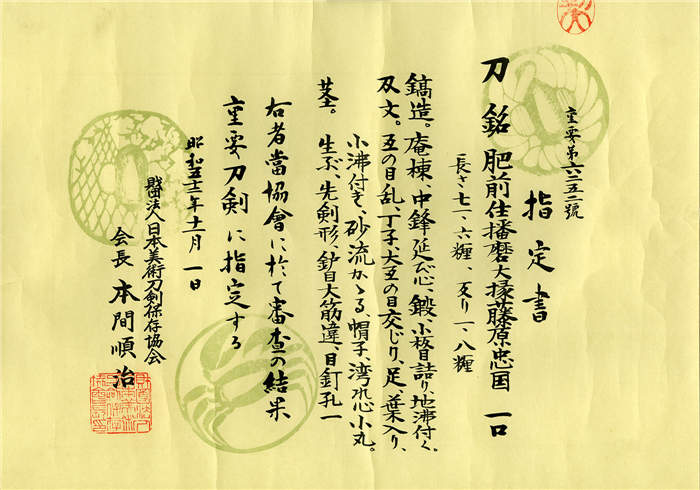 重要第六二五二號
指定書
刀 銘 肥前住播磨大掾藤原忠国 一口
長さ七一、六糎、反り一、八糎
鎬造。庵棟、中鋒延び心、鍛、小板目詰り、地沸付く。
刃文。互の目乱、丁子、大互の目交じり、足、葉入り、
小沸付き、砂流かゝる、帽子、湾れ心小丸。
茎。生ぶ、先剣形、鈩目大筋違、目釘孔一
右者當協會に於て審査の結果
重要刀剣に指定する
昭和五十二年十一月一日
財団法人日本美術刀剣保存協会
会長 本間順治